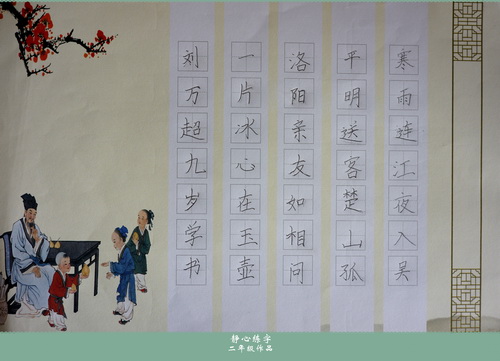 寒雨连江夜入吴
平明送客楚山孤
洛阳亲友如相问
一片冰心在玉壶
刘万超九岁学书
静心练字
二年级作品